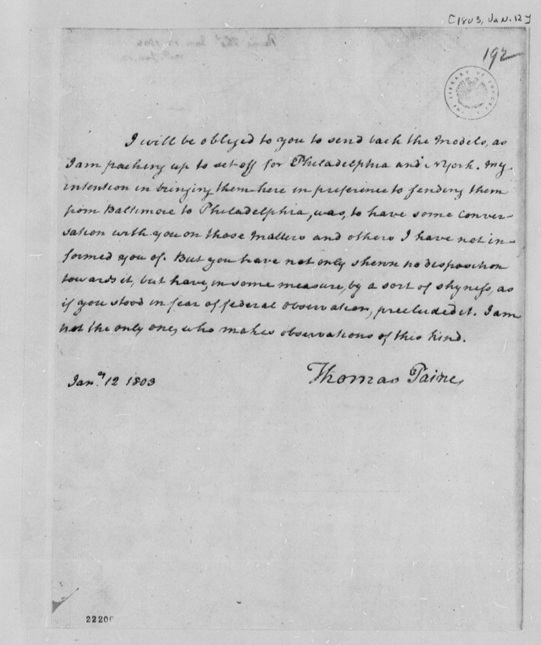 [1803, Jan. 12]
192
I will be obliged to you to send back the Models, as
I am packing up to set off for Philadelphia and NYork. My
intention in bringing them here in preference to sending them
from Baltimore to Philadelphia, was, to have some conver-
sation with you on those matters and others I have not in-
formed you of. But you have not only shewn no disposition
towards it, but have, in some measure, by a sort of shyness, as
if you stood in fear of federal observation, precluded it. I am
not the only one, who makes observations of this kind.
Thomas Paine
Jany 12 1803
2220